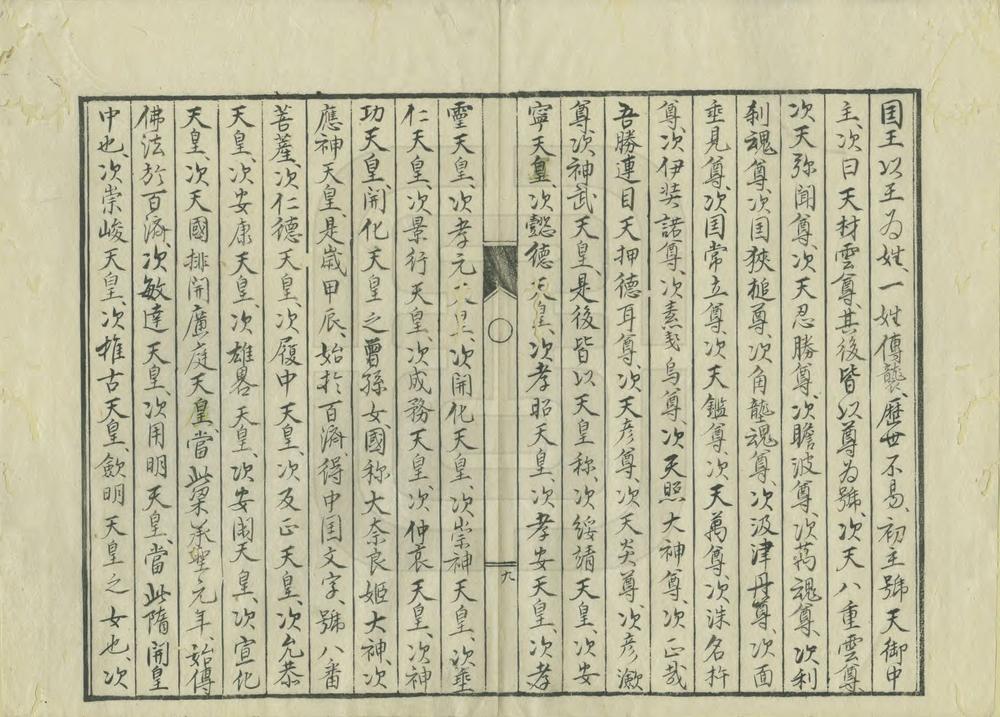 囯王以王为姓、一姓傳襲、歴世不易、初主號天御中
主、次曰天材雲尊、其後皆以尊为號、次天八重雲尊
次天弥聞尊、次天忍勝尊、次瞻波尊、次萬魂尊、次利
刹魂尊、次囯狹槌尊、次角龔魂尊、次汲津丹尊、次面
垂見尊、次囯常立尊、次天鑑尊、次天萬尊、次沬名杵
尊、次伊奘諾尊、次素戔烏尊、次天照大神尊、次正哉
吾勝速日天押德耳尊、次天彦尊、次天炎尊、次彦瀲
尊、次神武天皇、是後皆以天皇称、次綏靖天皇、次安
寧天皇、次懿德天皇、次孝昭天皇、次孝安天皇、次孝
九
靈天皇、次孝元天皇、次開化天皇、次崇神天皇、次垂
仁天皇、次景行天皇、次成務天皇、次仲哀天皇、次神
功天皇、開化天皇之曽孫女、國称大奈良姬大神、次
應神天皇、是歲甲辰、始於百濟、得中囯文字、號八番
菩薩、次仁德天皇、次履中天皇、次反正天皇、次允恭
天皇、次安康天皇、次雄畧天皇、次安閑天皇、次宣化
天皇、次天國排開廣庭天皇、當此梁承聖元年、始傳
佛法於百濟、次敏達天皇、次用明天皇、當此隋開皇
中也、次崇峻天皇、次推古天皇、歛明天皇之女也、次